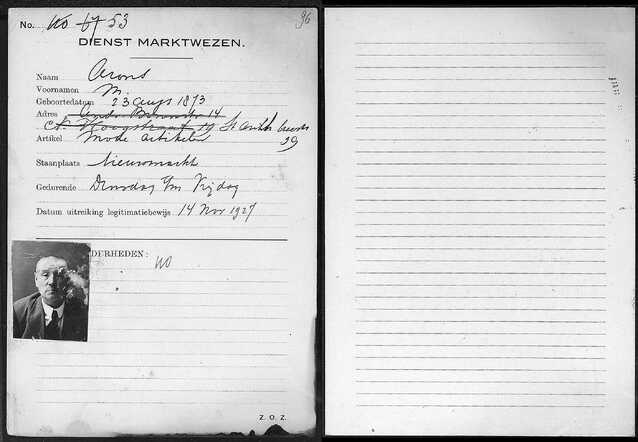 No. 53
96
DIENST MARKTWEZEN.
Naam Arons
Voornamen M.
Geboortedatum 23 Aug 1873
Adres 14
19 St Anth. breestr
Artikel Mode artikelen 39
Staanplaats Nieuwmarkt
Gedurende Dinsdag t/m Vrijdag
Datum uitreiking legitimatiebewijs 14 Nov 1927
DERHEDEN:
Z. O. Z.